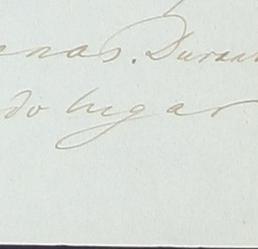 enas. Durant
do lugar